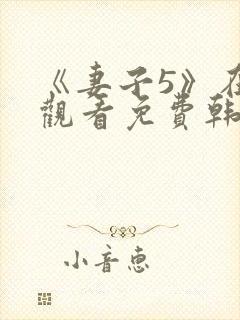 《妻子5》在
觀看免費韩
小音惠